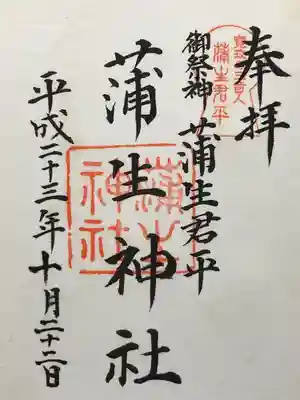 奉拝
蒲生君平
御祭神 蒲生君平
蒲生神社
蒲生神社
平成二十三年十月二十二日